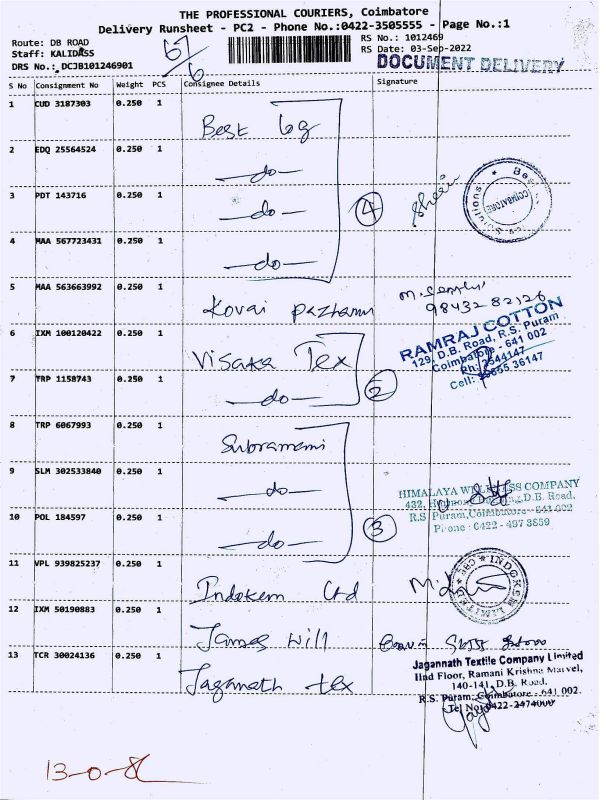 THE PROFESSIONAL COURIERS, Coimbatore
Delivery Runsheet - PC2 - Phone No.:0422-3505555 - Page No.:1
Route: DB ROAD
Staff: KALIDASS
DRS No.: DCJB101246901
67/6
RS No.: 1012469
RS Date: 03-Sep-2022
DOCUMENT DELIVERY
S No Consignment No Weight PCS Consignee Details Signature
1 CUD 3187303 0.250 1 Best
2 EDQ 25564524 0.250 1 —do—
3 PDT 143716 0.250 1 —do— 4
COIMBATORE
4 MAA 567723431 0.250 1 —do—
5 MAA 563663992 0.250 1 Kovai Pazhamu
98432 82126
6 IXM 100120422 0.250 1 Visaka Tex
RAMRAJ COTTON
129, D.B. Road, R.S. Puram
Coimbatore - 641 002
Ph: 2544147
7 TRP 1158743 0.250 1 —do— 2
8 TRP 6067993 0.250 1 Subramani
9 SLM 302533840 0.250 1 —do—
HIMALAYA WELLNESS COMPANY
432, D.B. Road,
R.S. Puram, Coimbatore - 641 002
Phone : 0422 - 497 3859
10 POL 184597 0.250 1 —do— 3
11 VPL 939825237 0.250 1 Indokem Ltd
INDOKEM LIMITED * CBE *
12 IXM 50190883 0.250 1 James Will
13 TCR 30024136 0.250 1 Jagannath tex
Jagannath Textile Company Limited
IInd Floor, Ramani Krishna Marvel,
140-141, D.B. Road,
R.S. Puram, Coimbatore - 641 002.
Tel No: 0422-2474000
13-0-